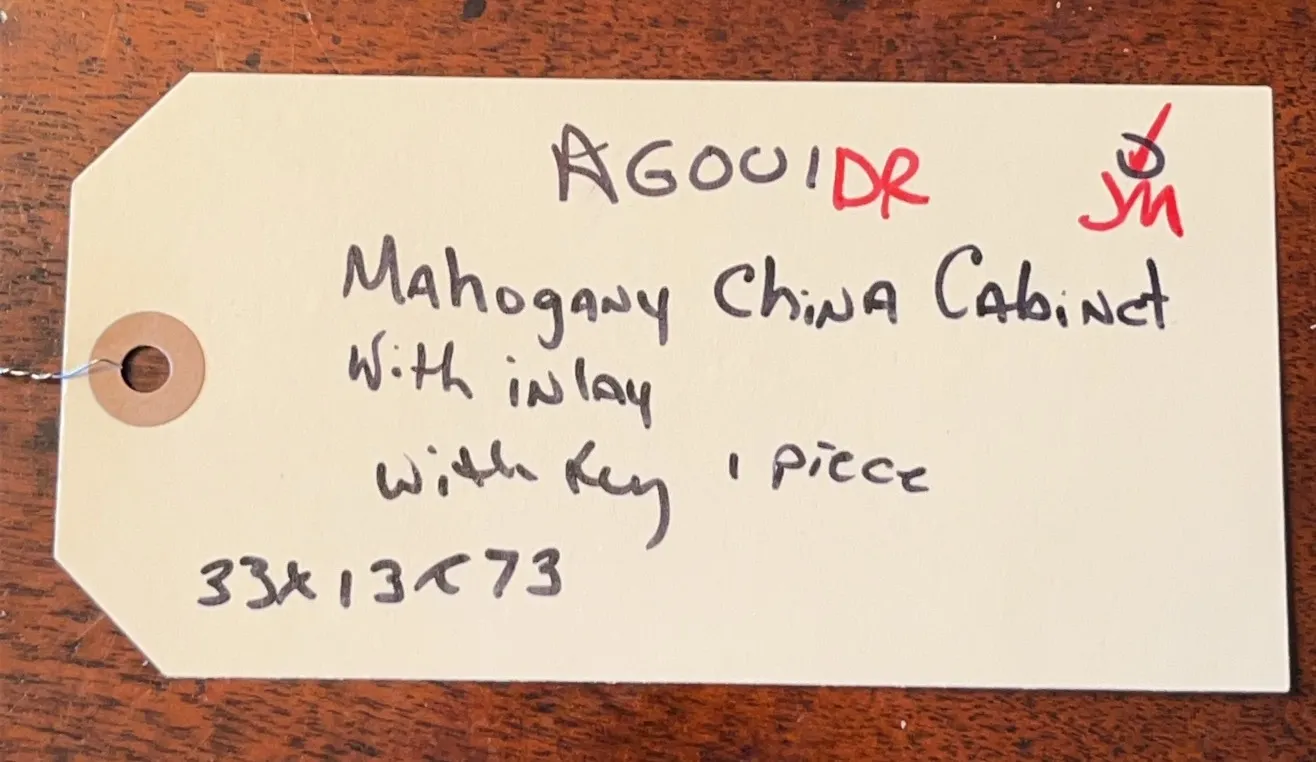 AG001DR
JM
Mahogany China Cabinet
With inlay
with key 1 piece
33x13x73